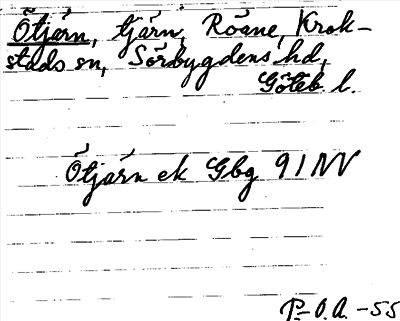 Ötjärn, tjärn, Röane, Krok-
stads sn, Sörbygdens hd,
Göteb. l.
Ötjärn ek Gbg 91NV
P-O.A. -55